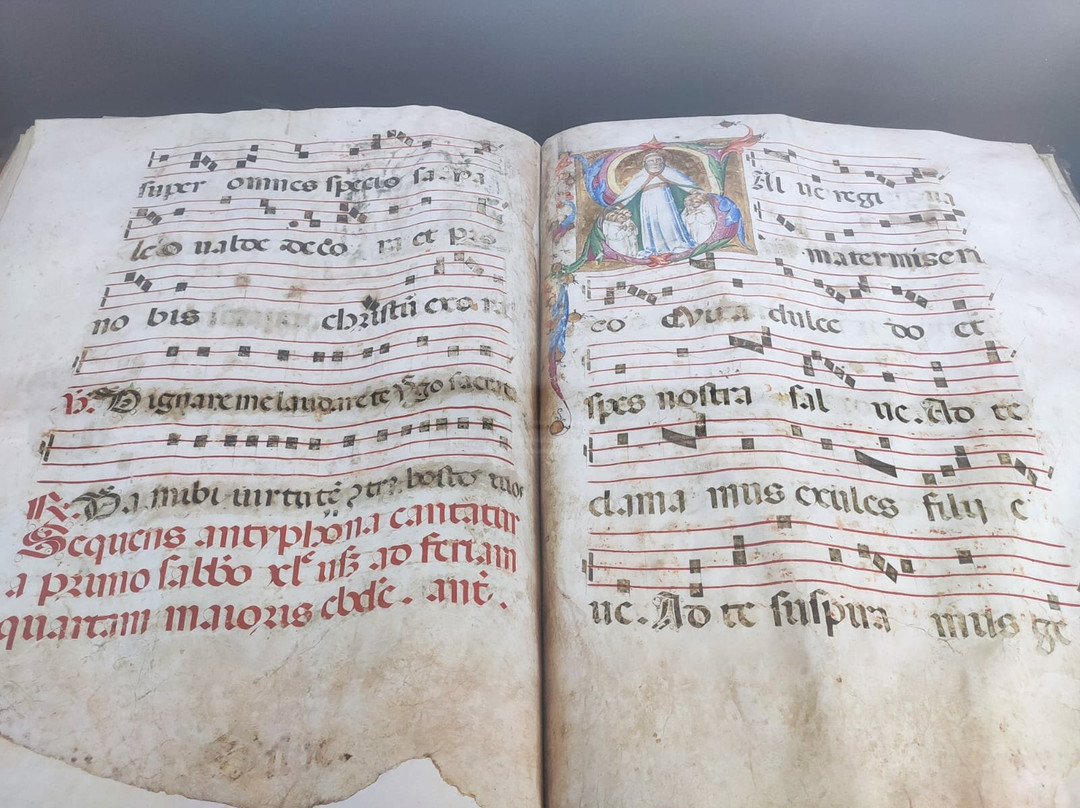 super omnes specio sa. Va
le o valde deco ra et pro
no bis christū exora
V. Dignare me laudare te vgo sacrata
R. Da mihi virtutē 2tra hostes tuos
Sequens antyphona cantatur
a primo sabbo xl usq ad feriam
quartam maioris ebde. ant.
SAl ve regi na
mater miseri
co Vita dulce do et
spes nostra sal ve. Ad te
clama mus exules filij e
ve. Ad te suspira mus ge